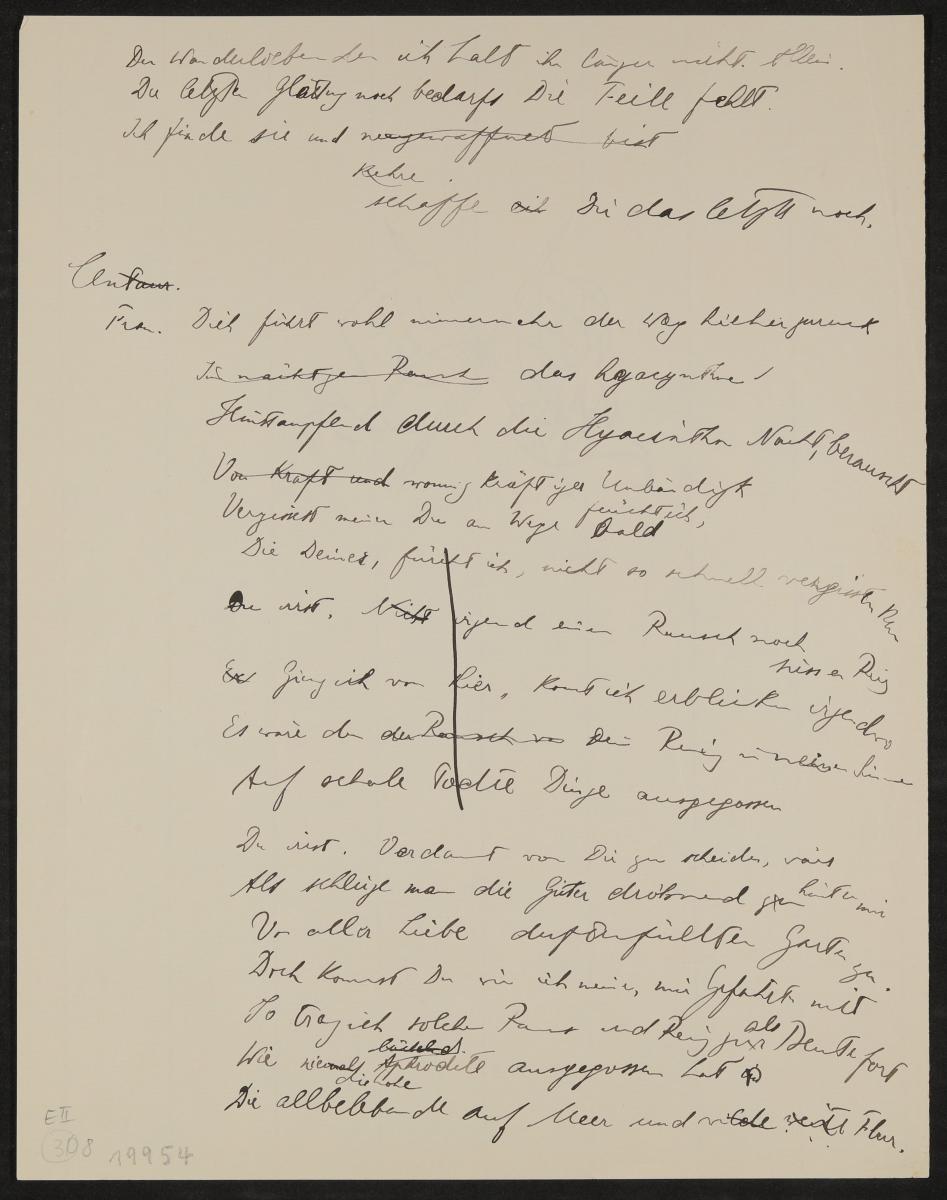 Der Wanderlebenden ich halt ihn länger nicht. Allein.
Du letzten Glättung noch bedarfs Die Feile fehlt.
Ich finde sie und neugewaffnet bist
Kehre.
schaffe ich Dir das letzte noch.
Centaur.
Frau. Dich führt wohl nimmermehr der Weg hieher zurück
Im nächtgen Rausch das hyacynthne
Hinstampfend durch die Hyacinthen Nacht, berauscht
Von Kraft und wonnig kräftiger Unbändigk
Vergissest meine Du am Wege bald
fürcht ich,
Die Deines, fürcht ich, nicht so schnell vergisst.
Du irrst. Nicht irgend einen Rausch noch
süssen Reiz
Ging ich von hier, könnt ich erblicken irgendwo
Es wäre denn der Rausch Dein Reiz in meinen Sinnen
Auf schale todte Dinge ausgegossen
Du irrst. Verdammt von Dir zu scheiden, wärs
Als schlüge man die Güter dröhnend hinter mir
Von aller Liebe dufterfüllten Garten zu.
Doch kommst Du wie ich meine, mir Gefährtin mit
So trag ich solchen und Reiz als Beute fort
Wie niemals lächelnd Aphrodite ausgegossen hat
die hohe
Die allbelebende auf Meer und Flur.
E II
308 19954